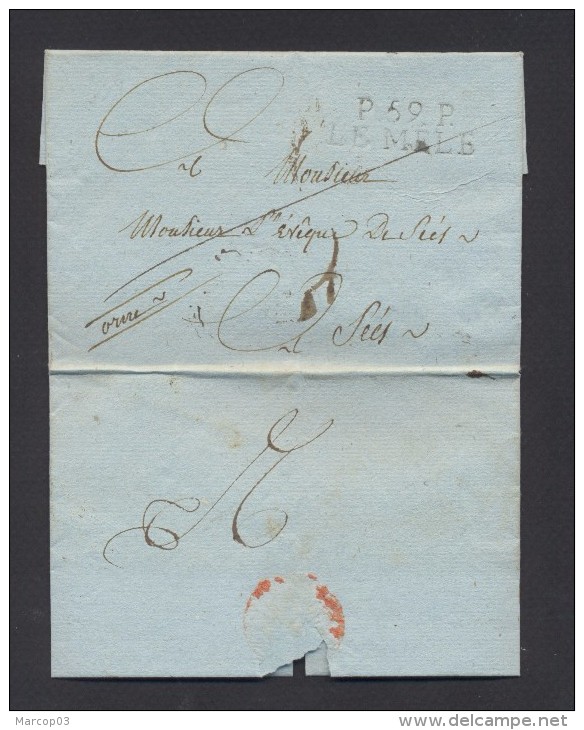 P. 59. P.
LE MELE
A Monsieur
Monsieur L'évêque De Séés
orne
A Séés
Marcop03
www.delcampe.net